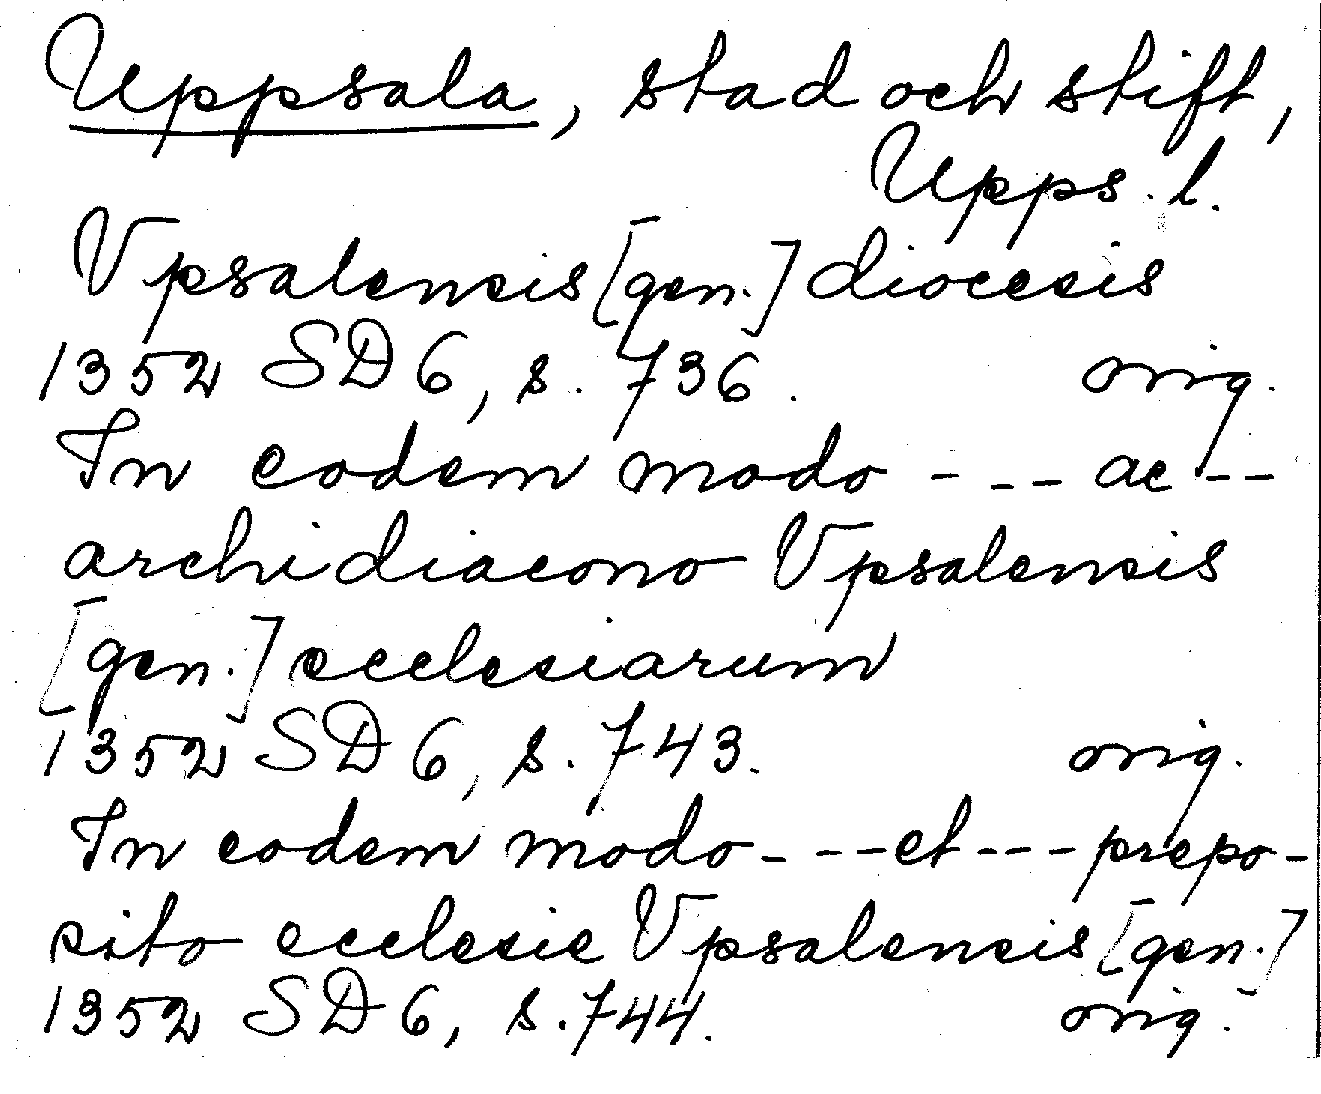 Uppsala, stad och stift,
Upps. l.
Vpsalensis [gen.] diocesis
1352 SD 6, s. 736. orig.
In eodem modo - - - ac - -
archidiacono Vpsalensis
[gen.] ecclesiarum
1352 SD 6, s. 743. orig.
In eodem modo - - - - et - - - - prepo-
sito ecclesie Vpsalensis [gen.]
1352 SD 6, s. 744. orig.